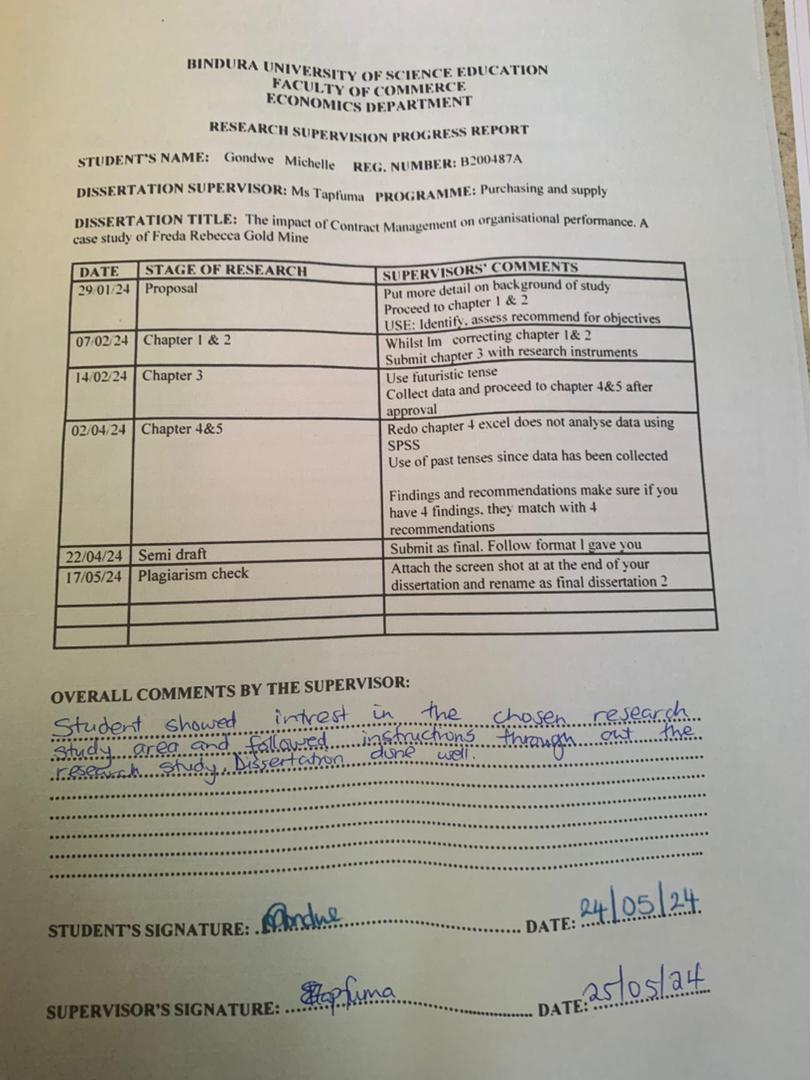 BINDURA UNIVERSITY OF SCIENCE EDUCATION
FACULTY OF COMMERCE
ECONOMICS DEPARTMENT
RESEARCH SUPERVISION PROGRESS REPORT
STUDENT'S NAME: Gondwe Michelle REG. NUMBER: B200487A
DISSERTATION SUPERVISOR: Ms Tapfuma PROGRAMME: Purchasing and supply
DISSERTATION TITLE: The impact of Contract Management on organisational performance. A
case study of Freda Rebecca Gold Mine
DATE STAGE OF RESEARCH SUPERVISORS' COMMENTS
29/01/24 Proposal Put more detail on background of study
Proceed to chapter 1 & 2
USE: Identify, assess recommend for objectives
07/02/24 Chapter 1 & 2 Whilst Im correcting chapter 1& 2
Submit chapter 3 with research instruments
14/02/24 Chapter 3 Use futuristic tense
Collect data and proceed to chapter 4&5 after
approval
02/04/24 Chapter 4&5 Redo chapter 4 excel does not analyse data using
SPSS
Use of past tenses since data has been collected
Findings and recommendations make sure if you
have 4 findings, they match with 4
recommendations
22/04/24 Semi draft Submit as final. Follow format I gave you
17/05/24 Plagiarism check Attach the screen shot at at the end of your
dissertation and rename as final dissertation 2
OVERALL COMMENTS BY THE SUPERVISOR:
Student showed intrest in the chosen research
study area and followed instructions through out the
research study. Dissertation done well.
STUDENT'S SIGNATURE: DATE: 24/05/24
SUPERVISOR'S SIGNATURE: Tapfuma DATE: 25/05/24